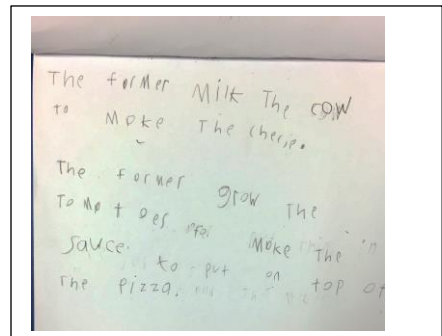 The former Milk The cow
to Moke The cherse.
The former grow The
To Mo t oes Moke The
Sauce. to put on top of
The pizza.